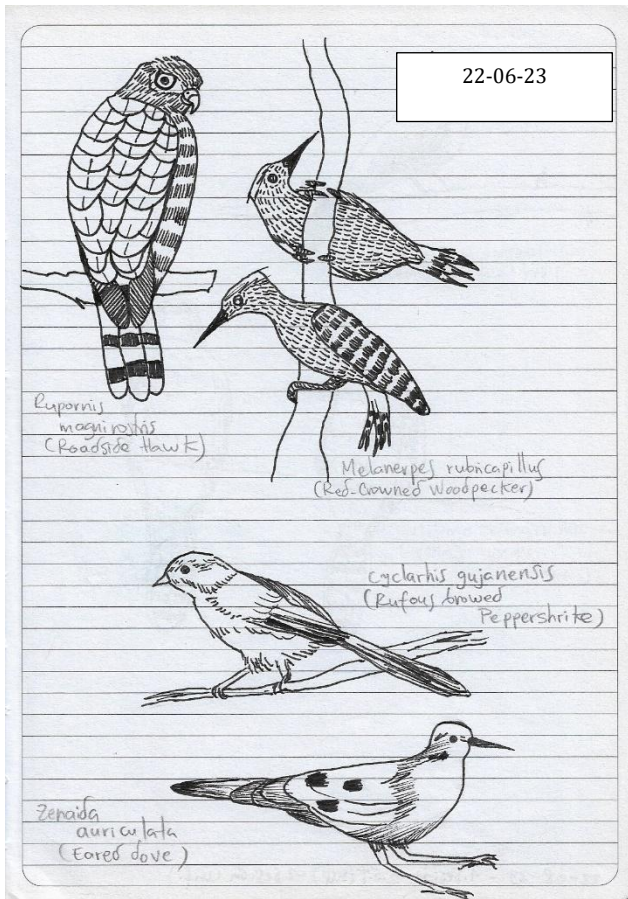 22-06-23
Rupornis
magnirostris
(Roadside Hawk)
Melanerpes rubicapillus
(Red-Crowned Woodpecker)
Cyclarhis gujanensis
(Rufous browed
Peppershrike)
Zenaida
auriculata
(Eared dove)